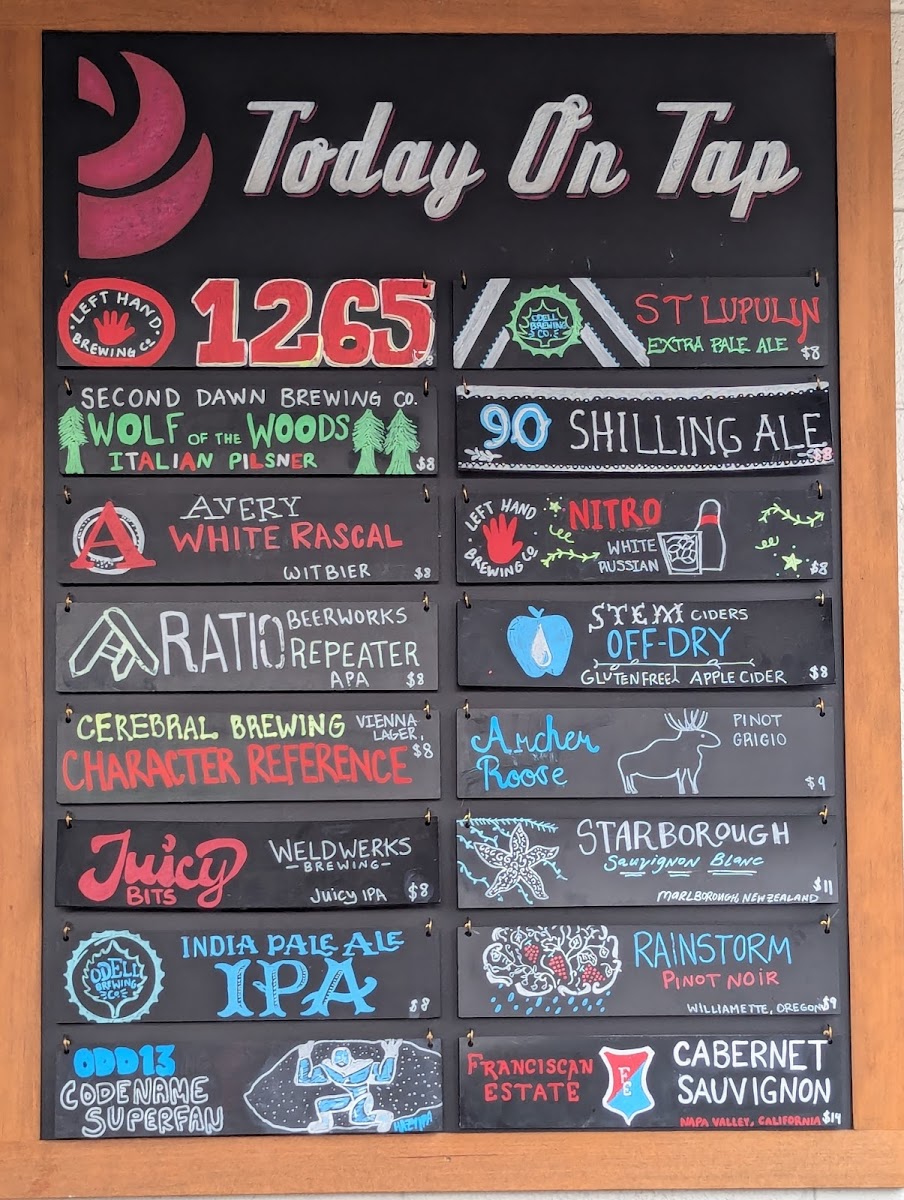 Today On Tap
LEFT HAND
BREWING CO.
1265
$8
SECOND DAWN BREWING CO.
WOLF OF THE WOODS
ITALIAN PILSNER
$8
A
AVERY
WHITE RASCAL
WITBIER
$8
RATIO BEERWORKS
REPEATER
APA
$8
CEREBRAL BREWING
VIENNA
LAGER.
$8
CHARACTER REFERENCE
Juicy
BITS
WELDWERKS
-BREWING-
Juicy IPA
$8
ODELL
BREWING
CO
INDIA PALE ALE
IPA
$8
ODD13
CODENAME
SUPERFAN
HAZY IPA
ODELL
BREWING
CO.
ST LUPULIN
EXTRA PALE ALE
$8
90 SHILLING ALE
$8
LEFT HAND
BREWING CO
NITRO
WHITE
RUSSIAN
$8
STEM CIDERS
OFF-DRY
GLUTEN FREE! APPLE CIDER
$8
Archer
Roose
PINOT
GRIGIO
$9
STARBOROUGH
Sauvignon Blanc
$11
MARLBOROUGH, NEW ZEALAND
RAINSTORM
PINOT NOIR
WILLIAMETTE, OREGON
$9
FRANCISCAN
ESTATE
FE
CABERNET
SAUVIGNON
NAPA VALLEY, CALIFORNIA
$14